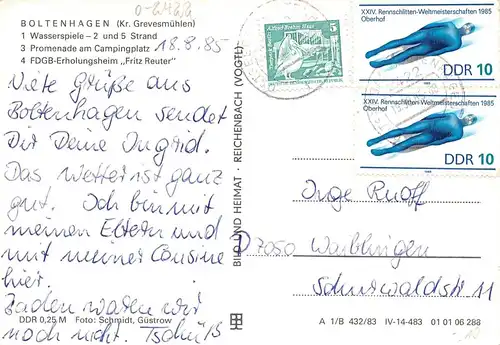 O-2423
BOLTENHAGEN (Kr. Grevesmühlen)
1 Wasserspiele – 2 und 5 Strand
3 Promenade am Campingplatz
4 FDGB-Erholungsheim „Fritz Reuter"
18.8.85
Viele Grüße aus
Boltenhagen sendet
Dir Deine Ingrid.
Das Wetter ist ganz
gut. Ich bin mit
meinen Eltern und
mit meiner Cousine
hier.
Baden waren wir
noch nicht. Tschüß
DDR 0,25 M Foto: Schmidt, Güstrow
BILD UND HEIMAT · REICHENBACH (VOGTL)
Alfred-Brehm-Haus
5
XXIV. Rennschlitten-Weltmeisterschaften 1985
Oberhof
DDR 10
XXIV. Rennschlitten-Weltmeisterschaften 1985
Oberhof
DDR 10
Inge Ruoff
D 7050 Waiblingen
Schurwaldstr 11
A 1/B 432/83 IV-14-483 01 01 06 288